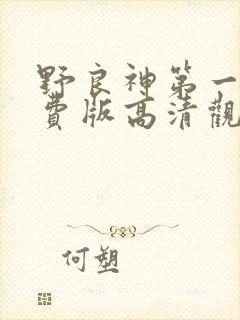 野良神第一
費版高清觀
何塑